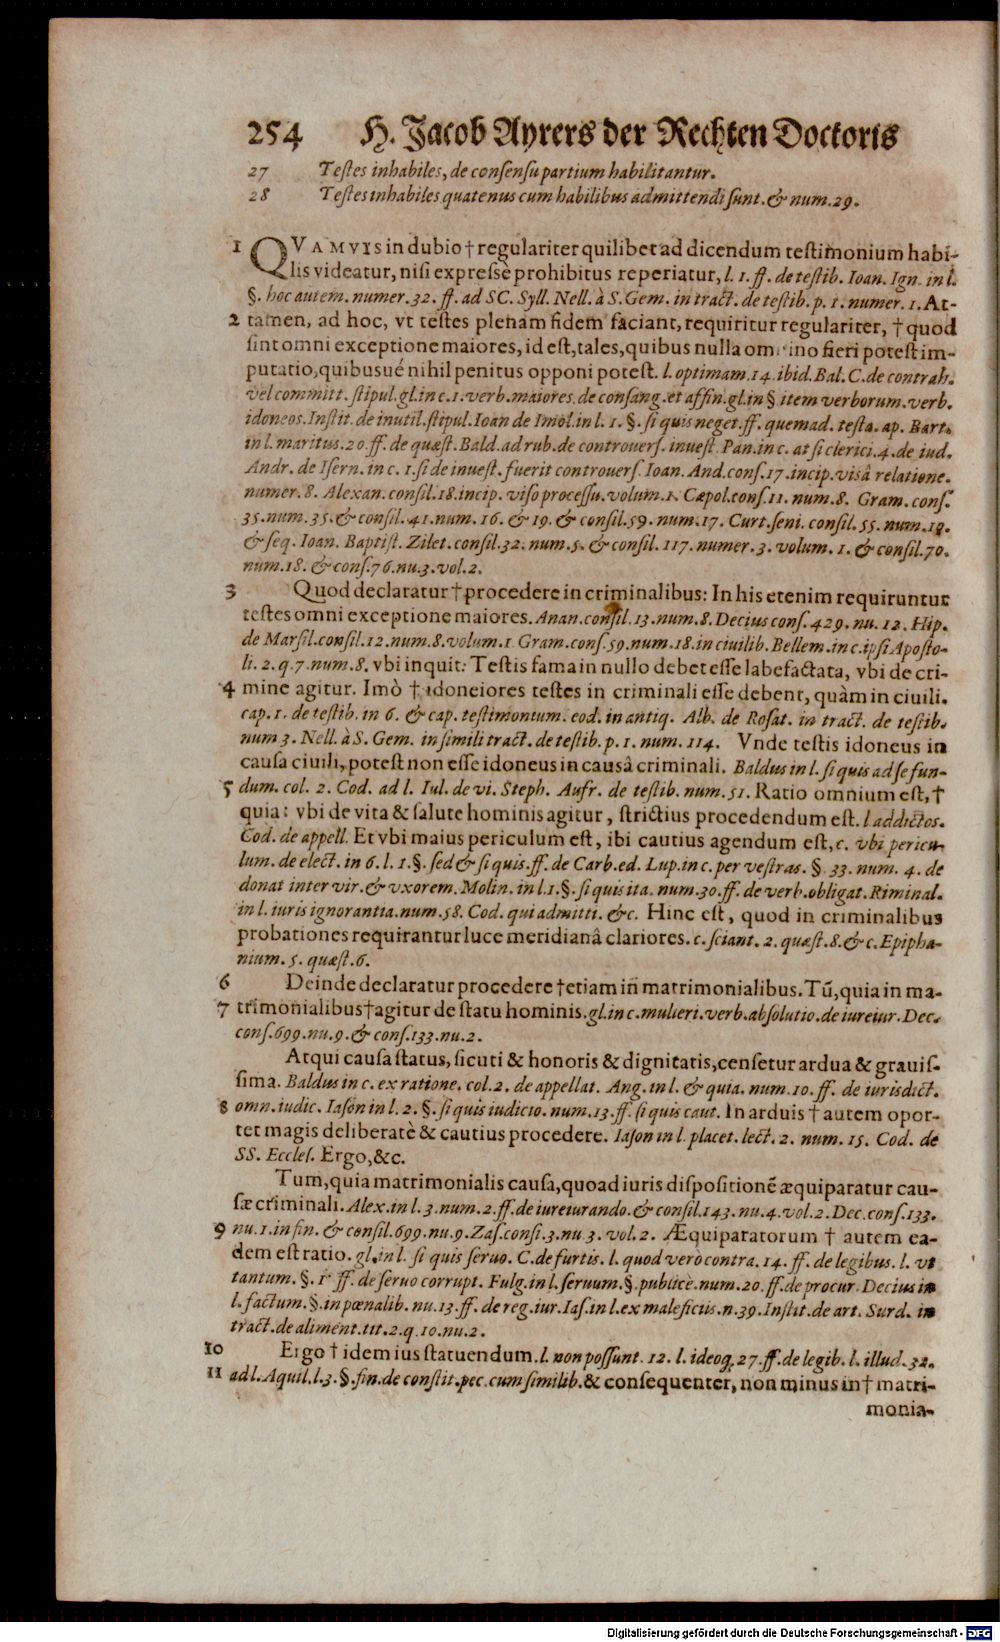 254 H. Jacob Ayrers der Rechten Doctoris
27 Testes inhabiles, de consensu partium habilitantur.
28 Testes inhabiles quatenus cum habilibus admittendi sunt. & num. 29.
1 QVAMVIS in dubio † regulariter quilibet ad dicendum testimonium habi-
lis videatur, nisi expressè prohibitus reperiatur, l. 1. ff. de testib. Ioan. Ign. in l.
§. hoc autem. numer. 32. ff. ad SC. Syll. Nell. à S. Gem. in tract. de testib. p. 1. numer. 1. At-
2 tamen, ad hoc, vt testes plenam fidem faciant, requiritur regulariter, † quod
sint omni exceptione maiores, id est, tales, quibus nulla omnino fieri potest im-
putatio, quibusué nihil penitus opponi potest. l. optimam. 14. ibid. Bal. C. de contrah.
vel committ. stipul. gl. in c. 1. verb. maiores. de consang. et affin. gl. in § item verborum. verb.
idoneos. Instit. de inutil. stipul. Ioan de Imol. in l. 1. §. si quis neget. ff. quemad. testa. ap. Bart.
in l. maritus. 20. ff. de quæst. Bald. ad rub. de controuers. inuest. Pan. in c. at si clerici. 4. de iud.
Andr. de Isern. in c. 1. si de inuest. fuerit controuers. Ioan. And. cons. 17. incip. visâ relatione.
numer. 8. Alexan. consil. 18. incip. viso processu. volum. 1. Cæpol. cons. 11. num. 8. Gram. cons.
35. num. 35. & consil. 41. num. 16. & 19. & consil. 59. num. 17. Curt. seni. consil. 55. num. 19.
& seq. Ioan. Baptist. Zilet. consil. 32. num. 5. & consil. 117. numer. 3. volum. 1. & consil. 70.
num. 18. & cons. 76. nu. 3. vol. 2.
3 Quod declaratur † procedere in criminalibus: In his etenim requiruntur
testes omni exceptione maiores. Anan. consil. 13. num. 8. Decius cons. 429. nu. 12. Hip.
de Marsil. consil. 12. num. 8. volum. 1 Gram. cons. 59. num. 18. in ciuilib. Bellem. in c. ipsi Aposto-
li. 2. q. 7. num. 8. vbi inquit: Testis fama in nullo debet esse labefactata, vbi de cri-
4 mine agitur. Imò † idoneiores testes in criminali esse debent, quàm in ciuili.
cap. 1. de testib. in 6. & cap. testimonium. eod. in antiq. Alb. de Rosat. in tract. de testib.
num 3. Nell. à S. Gem. in simili tract. de testib. p. 1. num. 114. Vnde testis idoneus in
causa ciuili, potest non esse idoneus in causâ criminali. Baldus in l. si quis ad se fun-
5 dum. col. 2. Cod. ad l. Iul. de vi. Steph. Aufr. de testib. num. 51. Ratio omnium est, †
quia: vbi de vita & salute hominis agitur, strictius procedendum est. l addictos.
Cod. de appell. Et vbi maius periculum est, ibi cautius agendum est, c. vbi pericu-
lum. de elect. in 6. l. 1. §. sed & si quis. ff. de Carb. ed. Lup. in c. per vestras. §. 33. num. 4. de
donat inter vir. & vxorem. Molin. in l. 1. §. si quis ita. num. 30. ff. de verb. obligat. Riminal.
in l. iuris ignorantia. num. 58. Cod. qui admitti. &c. Hinc est, quod in criminalibus
probationes requirantur luce meridianâ clariores. c. sciant. 2. quæst. 8. & c. Epipha-
nium. 5. quæst. 6.
6 Deinde declaratur procedere † etiam in matrimonialibus. Tũ, quia in ma-
7 trimonialibus † agitur de statu hominis. gl. in c. mulieri. verb. absolutio. de iureiur. Dec.
cons. 699. nu. 9. & cons. 133. nu. 2.
Atqui causa status, sicuti & honoris & dignitatis, censetur ardua & grauis-
sima. Baldus in c. ex ratione. col. 2. de appellat. Ang. in l. & quia. num. 10. ff. de iurisdict.
8 omn. iudic. Iason in l. 2. §. si quis iudicio. num. 13. ff. si quis caut. In arduis † autem opor-
tet magis deliberatè & cautius procedere. Iason in l. placet. lect. 2. num. 15. Cod. de
SS. Eccles. Ergo, &c.
Tum, quia matrimonialis causa, quoad iuris dispositionẽ æquiparatur cau-
sæ criminali. Alex. in l. 3. num. 2. ff. de iureiurando. & consil. 143. nu. 4. vol. 2. Dec. cons. 133.
9 nu. 1. in fin. & consil. 699. nu. 9. Zas. consi. 3. nu 3. vol. 2. Æquiparatorum † autem ea-
dem est ratio. gl. in l. si quis seruo. C. de furtis. l. quod verò contra. 14. ff. de legibus. l. vt
tantum. §. 1. ff. de seruo corrupt. Fulg. in l. seruum. §. publicè. num. 20. ff. de procur. Decius in
l. factum. §. in pœnalib. nu. 13. ff. de reg. iur. Ias. in l. ex maleficiis. n. 39. Instit. de art. Surd. in
tract. de aliment. tit. 2. q. 10. nu. 2.
10 Ergo † idem ius statuendum. l. non possunt. 12. l. ideoq; 27. ff. de legib. l. illud. 32.
11 ad l. Aquil. l. 3. §. fin. de constit. pec. cum similib. & consequenter, non minus in † matri-
monia-
Digitalisierung gefördert durch die Deutsche Forschungsgemeinschaft - DFG